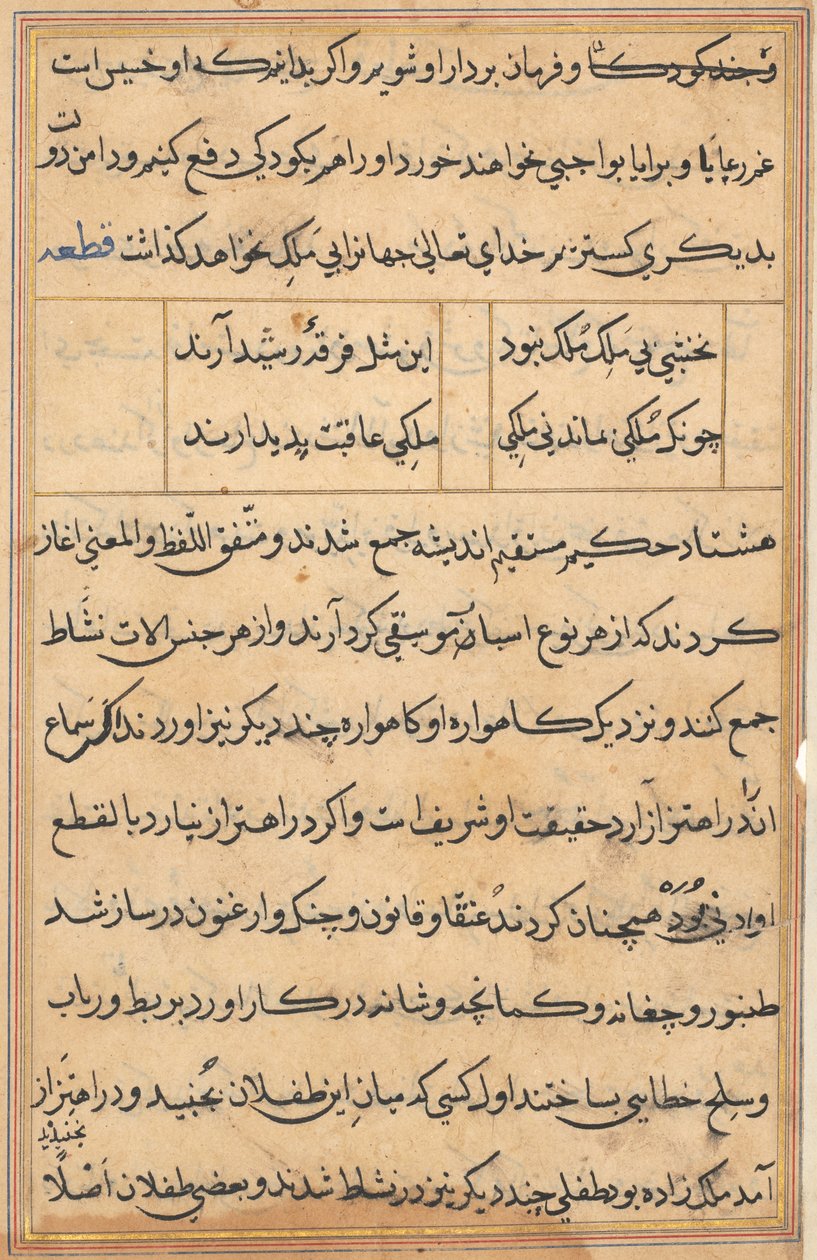 و چند کودک را و فرمان بردار او شویم و اکر بدانیم که او خسیس است
غم رعایا و برایا بواجبی نخواهند خورد او را هم بکودکی دفع کنیم و دامن دولت
بدیکری کستریم خدای تعالی جهانرا بی مَلِک نخواهد کذاشت قطعه
نخشبی بی مَلِک مُلک نبود این مثل فرقهٔ رشید آرند
چونک مُلکی نماند بی مَلِکی مَلِکی عاقبت پدید ارند
هشتاد حکیم مستقیم اندیشه جمع شدند و متّفق اللّفظ والمعنی اغاز
کردند که از هر نوع اسباب موسیقی کرد آرند و از هر جنس الات نشاط
جمع کنند و نزدیک کاهواره او کاهواره چند دیکر نیز اوردند اکر سماع
انرا در اهتزاز آرد حقیقت او شریف است و اکر در اهتزاز نیارد بالقطع
او دنی بود همچنان کردند عنقا و قانون و چنک و ارغنون در ساز شد
طنبور و چغانه و کمانچه و شانه در کار اورد بربط و رباب
و سلح خطایی بساختند اول کسی که میانِ این طفلان بجُنبید و در اهتِزاز
بجنبیدید
آمد ملک زاده بود طفلی چند دیکر نیز در نشاط شدند و بعضی طفلان اَصْلًا